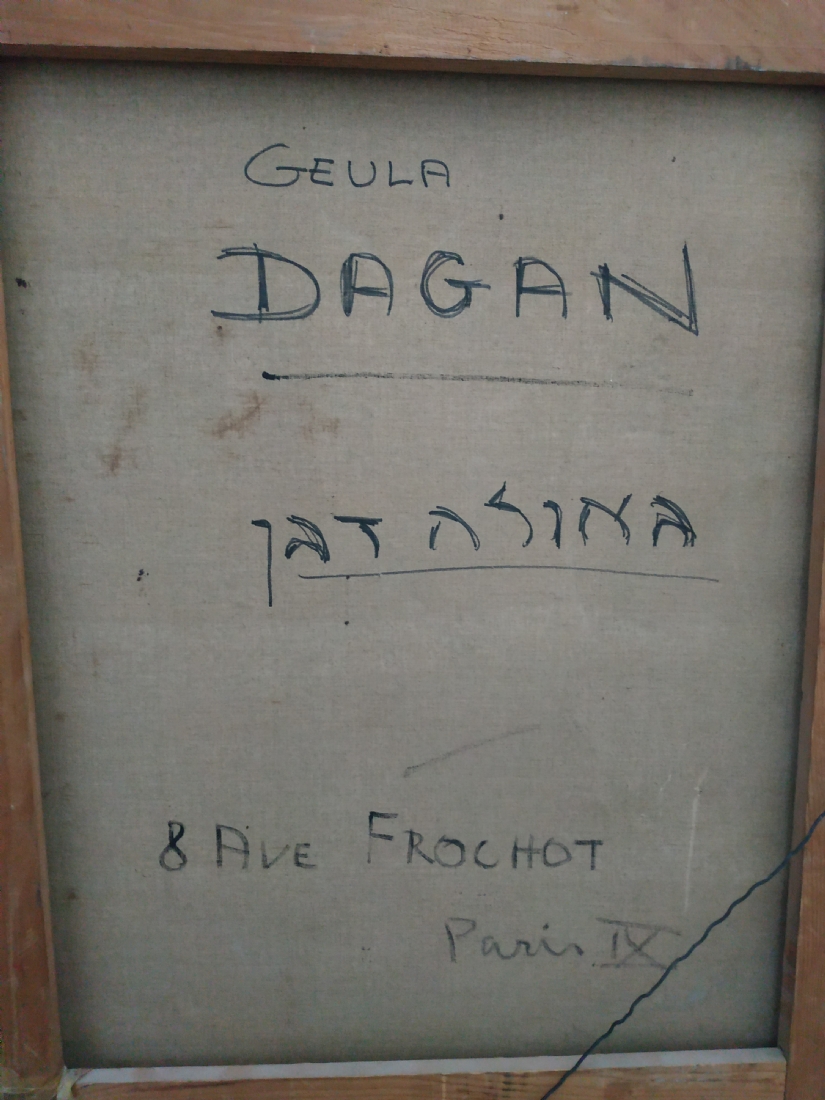 GEULA
DAGAN
גאולה דגן
8 AVE FROCHOT
Paris IX